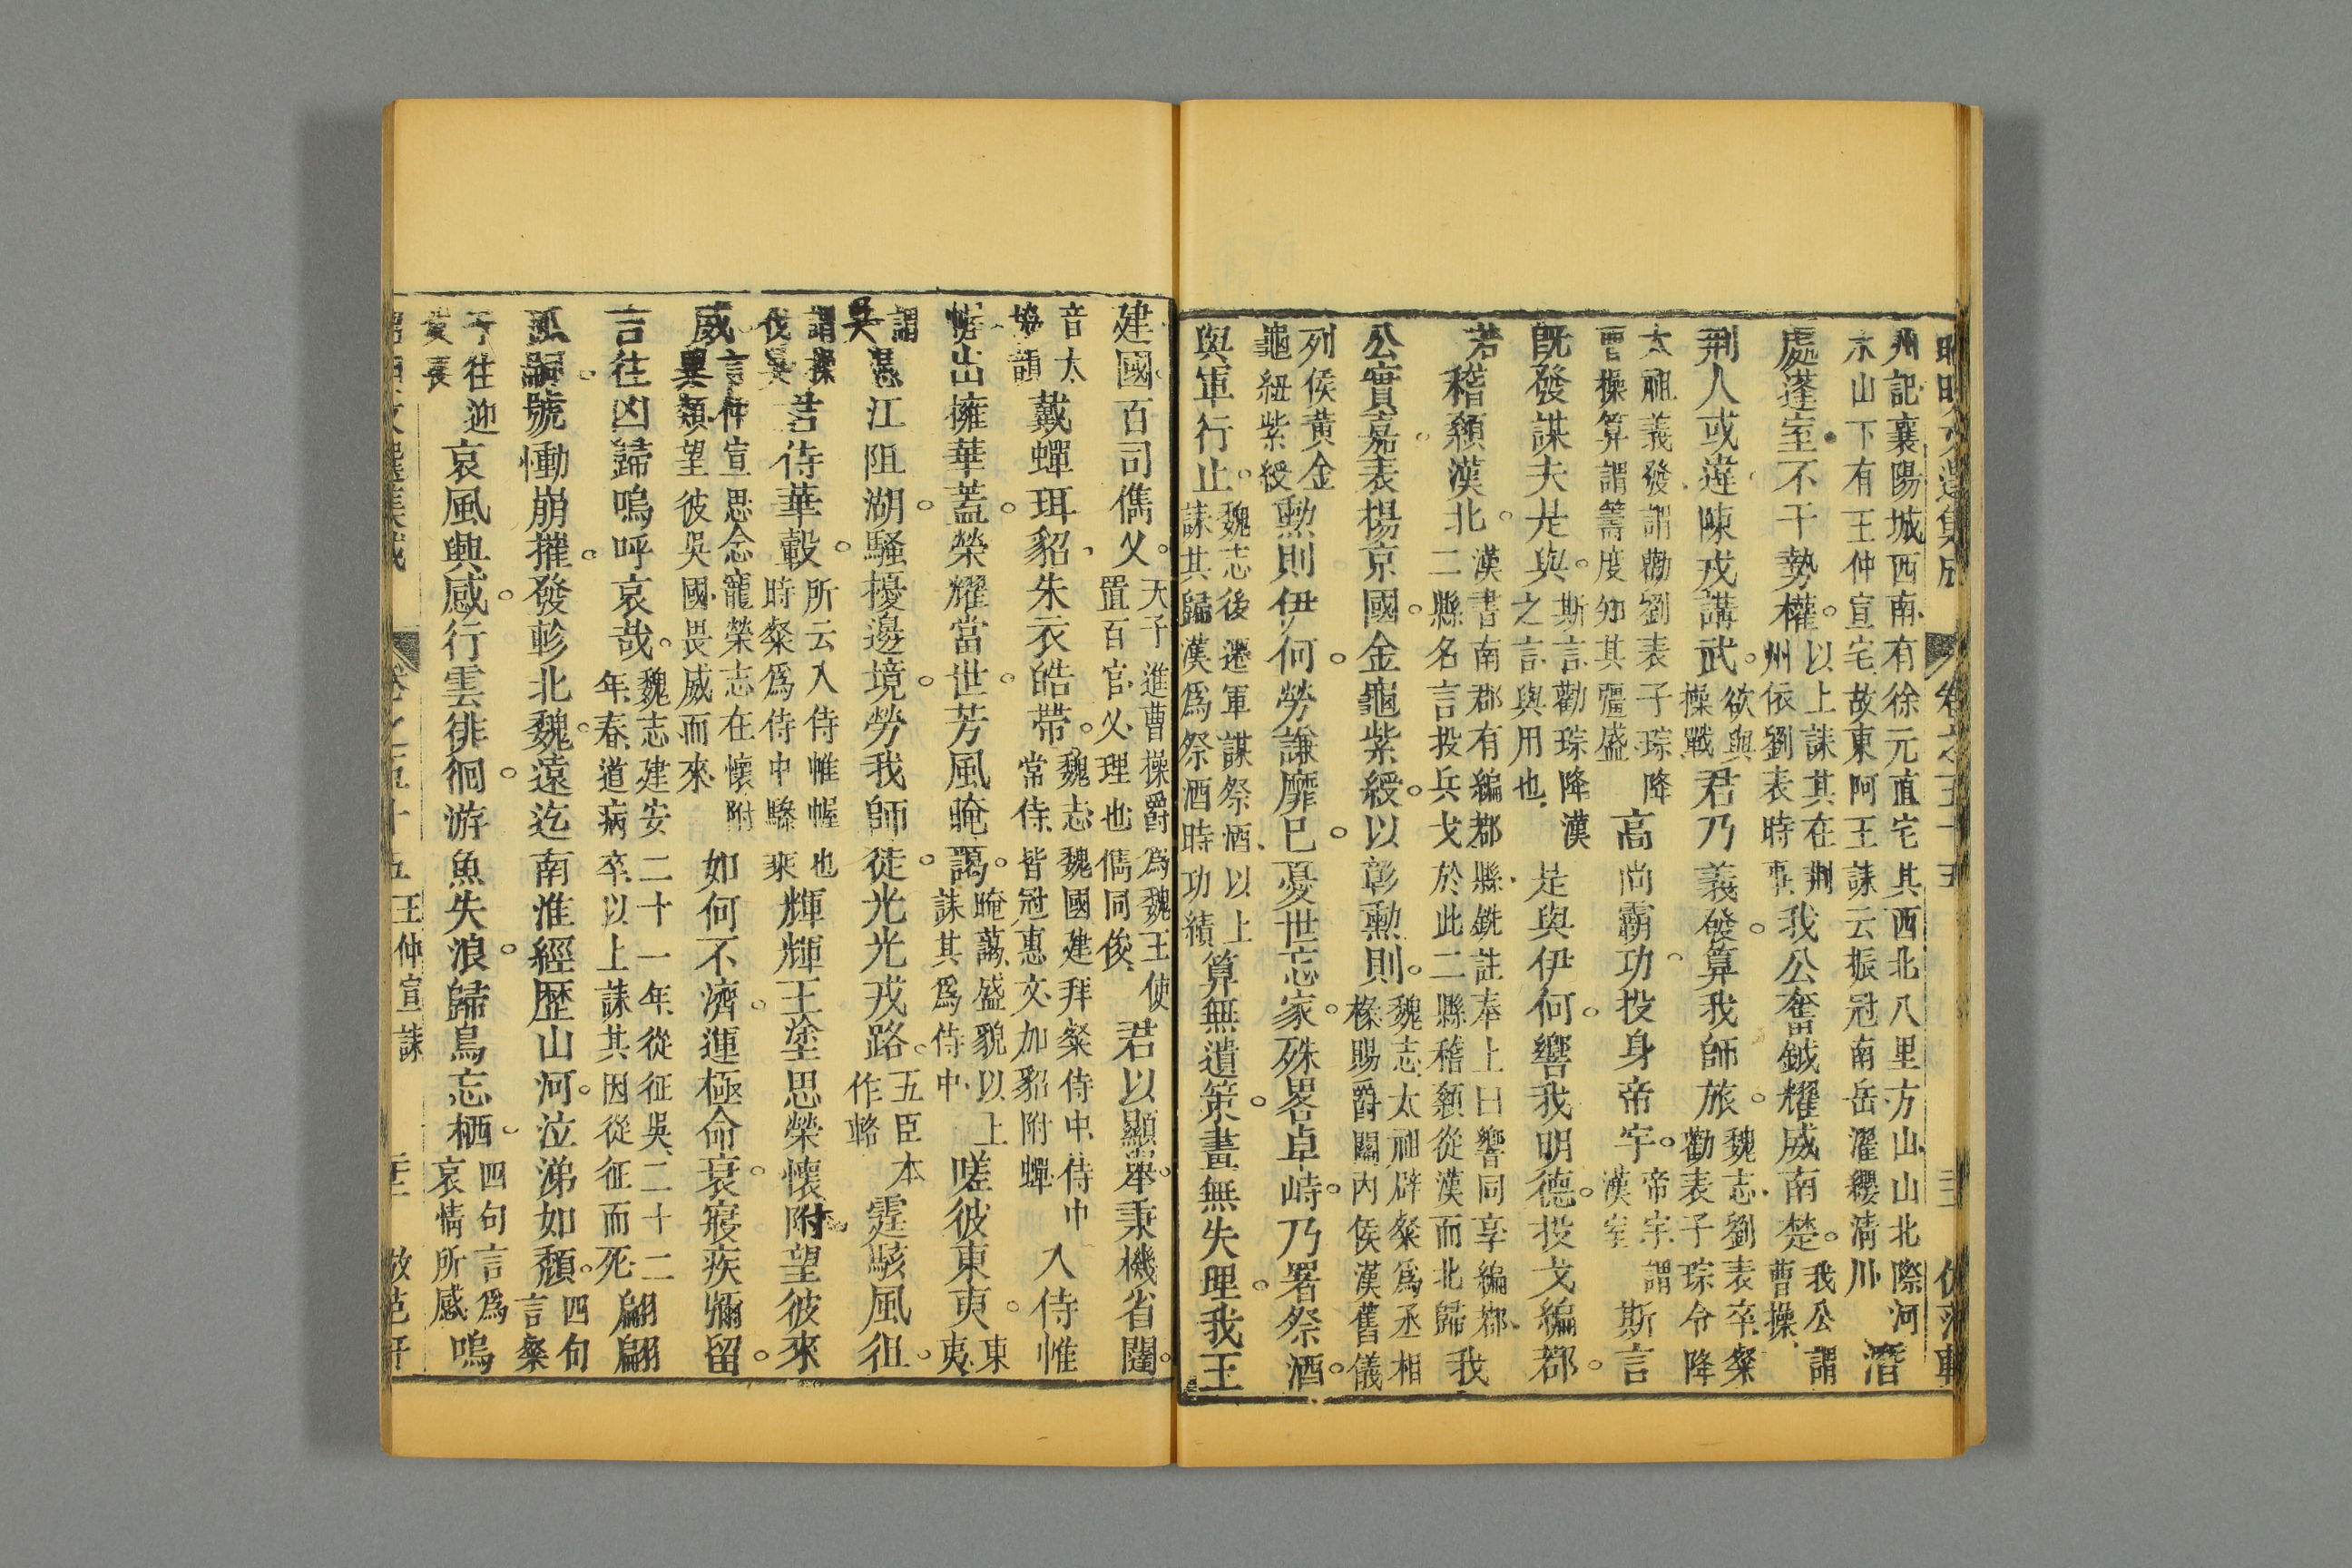 昭明文選集成 卷之五十五
州記襄陽城西南有徐元直宅其西北八里方山山北際河
水山下有王仲宣宅故東阿王誄云振冠南岳濯纓清川
潛
處蓬室不干勢權
以上誄其在荆
州依劉表時事
我公奮鉞耀威南楚
我公謂
曹操
荆人或違陳戎講武
欲與
操戰
君乃義發算我師旅
魏志劉表卒粲
勸表子琮令降
太祖義發謂勸劉表子琮降
曹操算謂籌度知其彊盛
高尚霸功投身帝宇
帝宇謂
漢室
斯言
既發謀夫是與
斯言勸琮降漢
之言與用也
是與伊何響我明德投戈編鄀
若稽顙漢北
漢書南郡有編鄀縣銑註奉上曰響同享編鄀
二縣名言投兵戈於此二縣稽顙從漢而北歸
我
公實嘉表揚京國金龜紫綬以彰勲則
魏志太祖辟粲為丞相
椽賜爵關內侯漢舊儀
列侯黄金
龜紐紫綬
勲則伊何勞謙靡已憂世忘家殊畧卓峙乃署祭酒
與軍行止
魏志後遷軍謀祭酒以上
誄其歸漢爲祭酒時功績
算無遺策畫無失理我王
建國百司儁乂
天子進曹操爵爲魏王使
置百官乂理也儁同俊
君以顯舉秉機省闥
音太
協韻
戴蟬珥貂朱衣皓帶
魏志魏國建拜粲侍中侍中
常侍皆冠惠文加貂附蟬
入侍帷
幄出擁華葢榮耀當世芳風晻藹
晻藹盛貌以上
誄其爲侍中
嗟彼東夷
東夷
謂
吳
憑江阻湖騷擾邊境勞我師徒光光戎路
五臣本
作輅
霆駭風徂
謂操
伐吳
君侍華轂
所云入侍帷幄也
時粲爲侍中驂乘
輝輝王塗思榮懷附望彼來
威
言仲宣思念寵榮志在懷附
異類望彼吳國畏威而來
如何不濟運極命衰寢疾彌留
言往凶歸嗚呼哀哉
魏志建安二十一年從征吳二十二
年春道病卒以上誄其因從征而死
翩翩
孤嗣號慟崩摧發軫北魏遠迄南淮經歷山河泣涕如頹
四句
言粲
子往迎
其喪
哀風興感行雲徘徊游魚失浪歸鳥忘栖
四句言爲
哀情所感
嗚
昭明文選集成 卷之五十五王仲宣誄